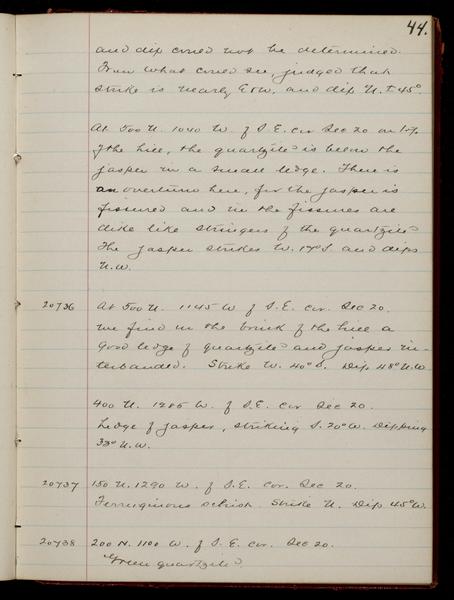 44.
and dip could not be determined.
From what could see, judged that
strike is nearly E & W. and dip N. 45°
At 500 N. 1040 W. of S.E. cor Sec 20 on top
of the hill, the quartzite is below the
jasper in a small ledge. There is
an overturn here, for the jasper is
fissured and in the fissures are
dike like stringers of the quartzite
The jasper strikes W. 17° S. and dips
N.W.
20736 At 500 N. 1145 W. of S.E. cor. Sec 20.
we find in the brink of the hill a
good ledge of quartzite and jasper in-
terbanded. Strike W. 40° S. Dip 48° N.W.
400 N. 1285 W. of S.E. cor Sec 20.
Ledge of jasper, striking S. 20° W. Dipping
33° N.W.
20737 150 N. 1290 W. of S.E. cor. Sec 20.
Ferruginous schist. Strike N. Dip 45° W.
20738 200 N. 1100 W. of S.E. cor. Sec 20.
Green quartzite.